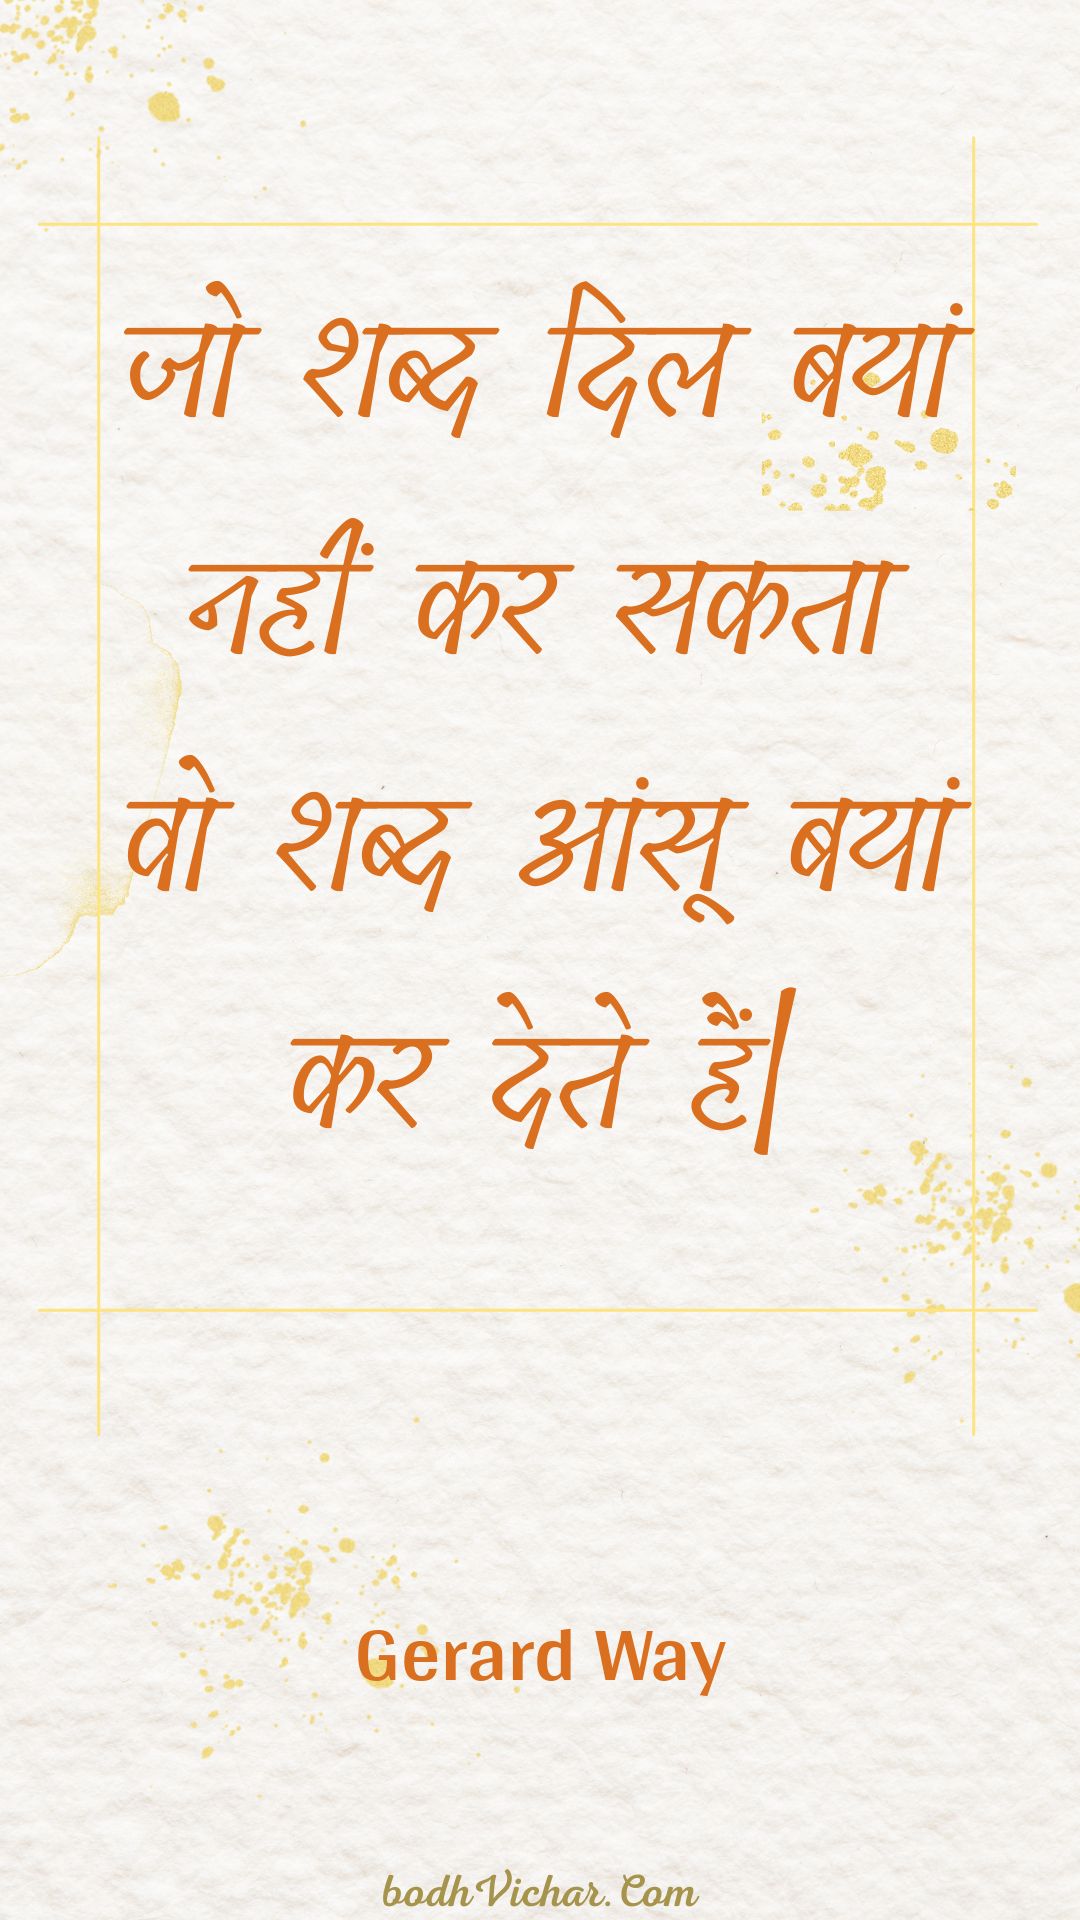 जो शब्द दिल बयां
नहीं कर सकता
वो शब्द आंसू बयां
कर देते हैं|
Gerard Way
bodhVichar.Com